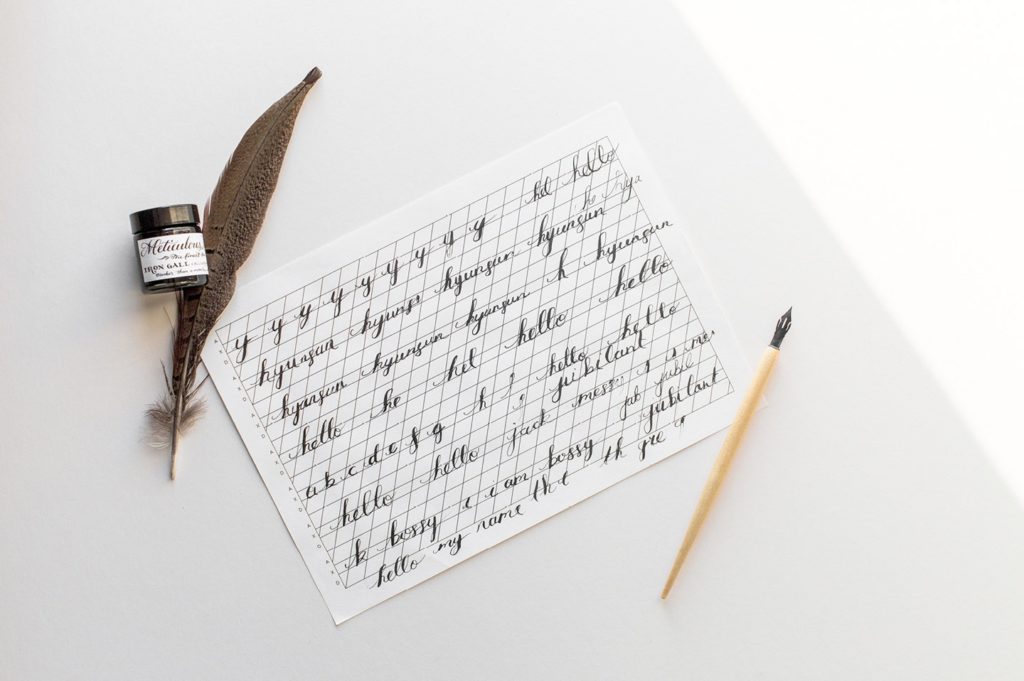 Meticulous
The finest
IRON GALL
y y y y y y y y hel hello
hyunsun hyuns hyunsun hyunsun
hyunsun hyunsun hyunsun h hyunsun
hello he hel hello hello
a b c d e f g h i hello hello
hello hello jack jubilant
k bossy i i am bossy jab jubil
hello my name the th jubilant